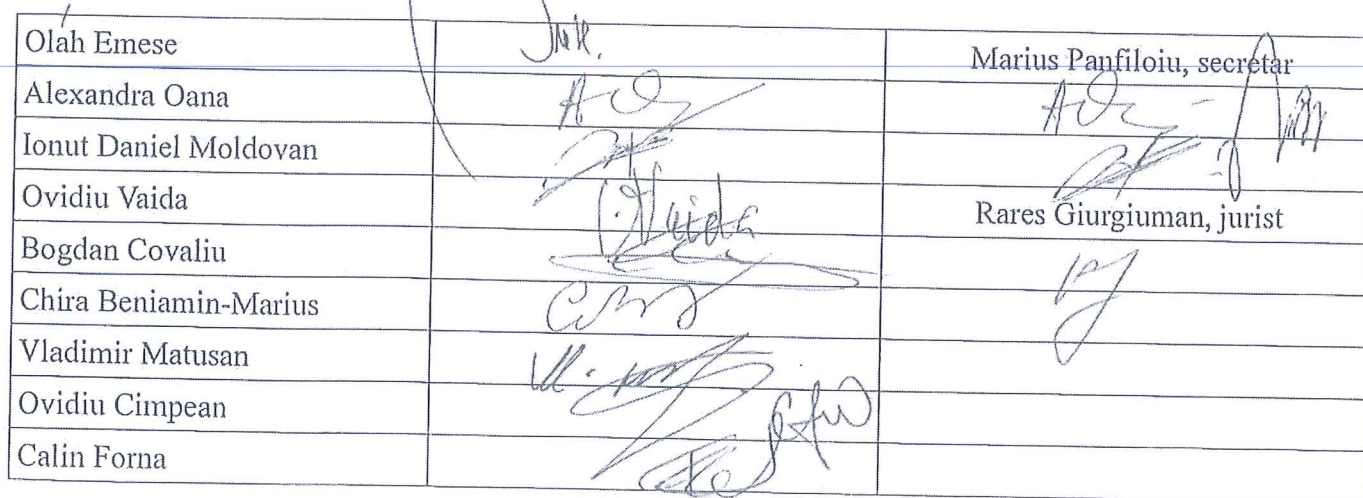 Olah Emese
Marius Panfiloiu, secretar
Alexandra Oana
Ionut Daniel Moldovan
Ovidiu Vaida
Rares Giurgiuman, jurist
Bogdan Covaliu
Chira Beniamin-Marius
Vladimir Matusan
Ovidiu Cimpean
Calin Forna